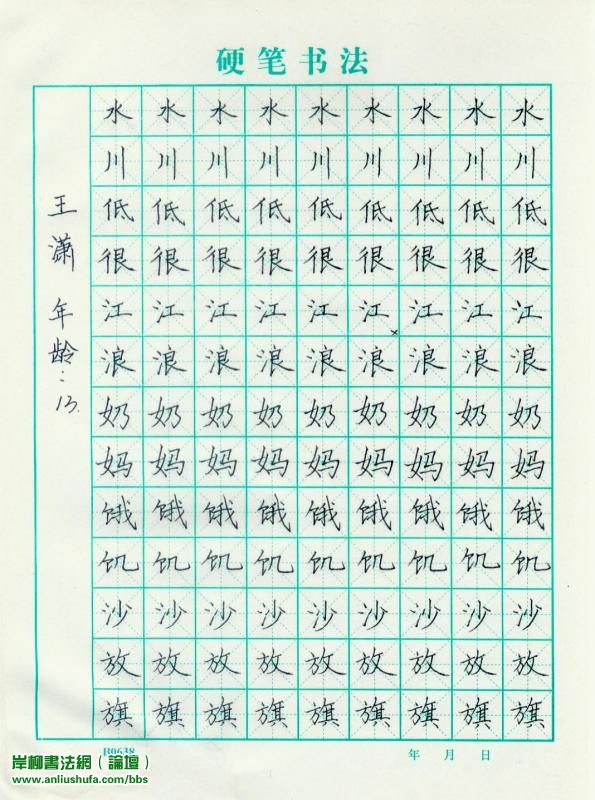 硬笔书法
水水水水水水水水水
川川川川川川川川川
低低低低低低低低低
很很很很很很很很很
江江江江江江江江江
浪浪浪浪浪浪浪浪浪
奶奶奶奶奶奶奶奶奶
妈妈妈妈妈妈妈妈妈
饿饿饿饿饿饿饿饿饿
饥饥饥饥饥饥饥饥饥
沙沙沙沙沙沙沙沙沙
放放放放放放放放放
旗旗旗旗旗旗旗旗旗
王潇 年龄:13.
B0638
年 月 日
岸柳書法網(論壇)
www.anliushufa.com/bbs